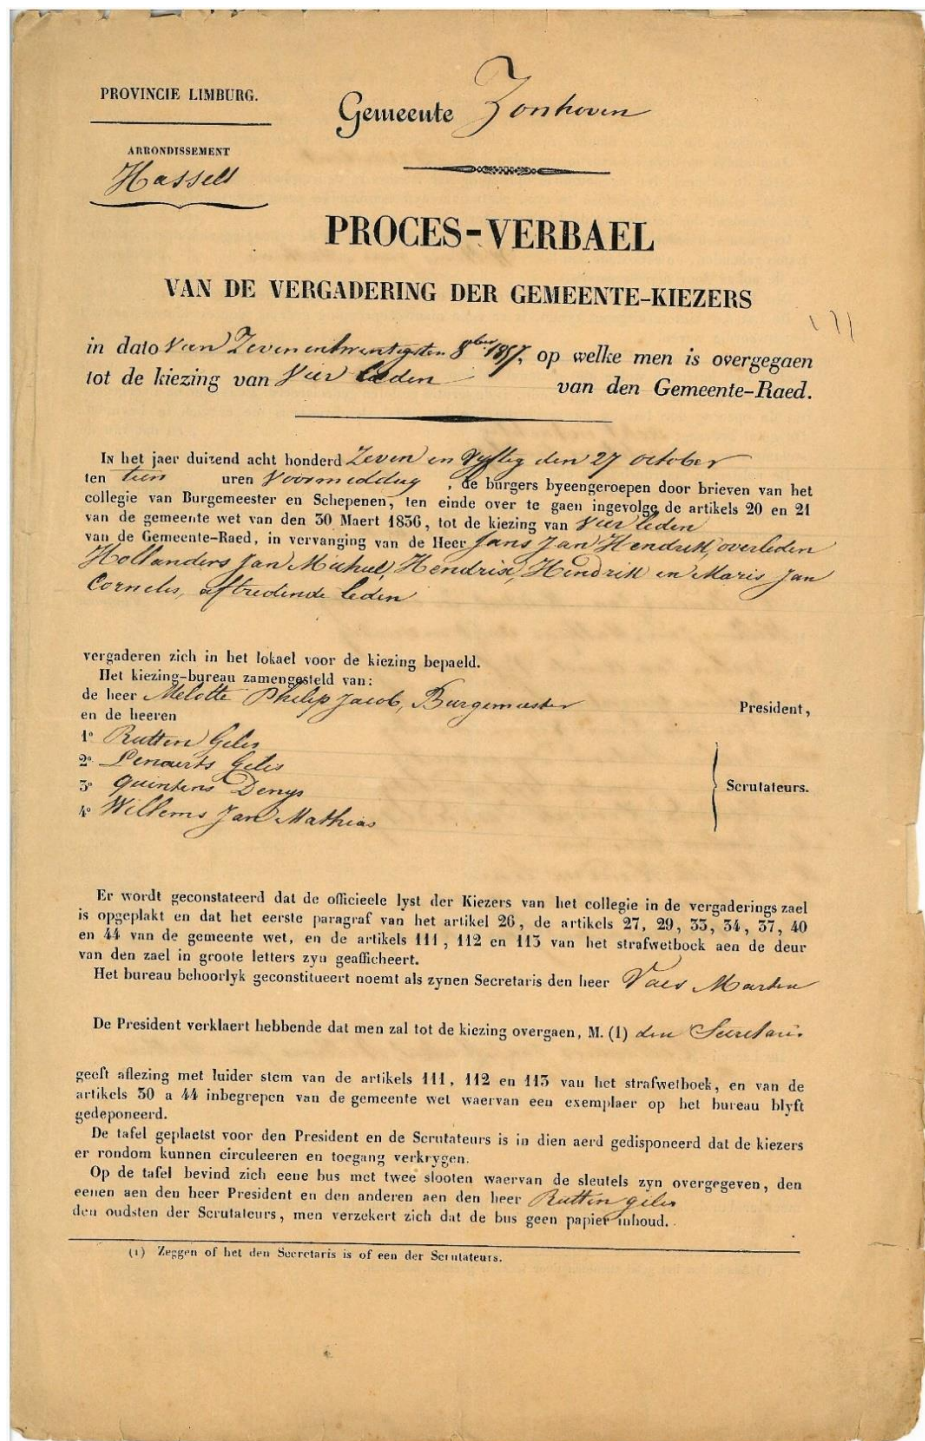 PROVINCIE LIMBURG.
Gemeente Zonhoven
ARRONDISSEMENT
Hasselt
PROCES-VERBAEL
VAN DE VERGADERING DER GEMEENTE-KIEZERS
in dato van Zevenentwentigsten 8ber 1857, op welke men is overgegaen
tot de kiezing van Vier leden van den Gemeente-Raed.
IN het jaer duizend acht honderd Zeven en Vyftig den 27 october
ten tien uren Voormiddag, de burgers byeengeroepen door brieven van het
collegie van Burgemeester en Schepenen, ten einde over te gaen ingevolge de artikels 20 en 21
van de gemeente wet van den 30 Maert 1836, tot de kiezing van Vier leden
van de Gemeente-Raed, in vervanging van de Heer Jans Jan Hendrik, overleden
Hollanders Jan Michiel, Hendrix, Hendrik en Maris Jan
Cornelis, aftredende leden
vergaderen zich in het lokael voor de kiezing bepaeld.
Het kiezing-bureau zamengesteld van:
de heer Melotte Philip Jacob, Burgemeester President,
en de heeren
1° Rutten Gelis
2° Lenaerts Gelis
3° Quintens Denys
Scrutateurs.
4° Willems Jan Mathias
Er wordt geconstateerd dat de officieele lyst der Kiezers van het collegie in de vergaderings zael
is opgeplakt en dat het eerste paragraf van het artikel 26, de artikels 27, 29, 33, 34, 37, 40
en 44 van de gemeente wet, en de artikels 111, 112 en 113 van het strafwetboek aen de deur
van den zael in groote letters zyn geafficheert.
Het bureau behoorlyk geconstitueert noemt als zynen Secretaris den heer Vaes Marten
De President verklaert hebbende dat men zal tot de kiezing overgaen, M. (1) den Secretaris
geeft aflezing met luider stem van de artikels 111, 112 en 113 van het strafwetboek, en van de
artikels 30 a 44 inbegrepen van de gemeente wet waervan een exemplaer op het bureau blyft
gedeponeerd.
De tafel geplaetst voor den President en de Scrutateurs is in dien aerd gedisponeerd dat de kiezers
er rondom kunnen circuleeren en toegang verkrygen.
Op de tafel bevind zich eene bus met twee slooten waervan de sleutels zyn overgegeven, den
eenen aen den heer President en den anderen aen den heer Rutten gelis
den oudsten der Scrutateurs, men verzekert zich dat de bus geen papier inhoud.
(1) Zeggen of het den Secretaris is of een der Scrutateurs.